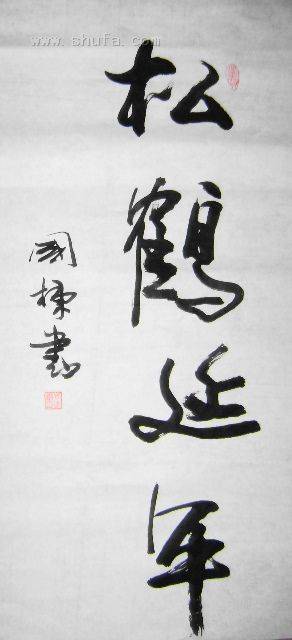 www.shufa.com
松鹤延年
國棟書